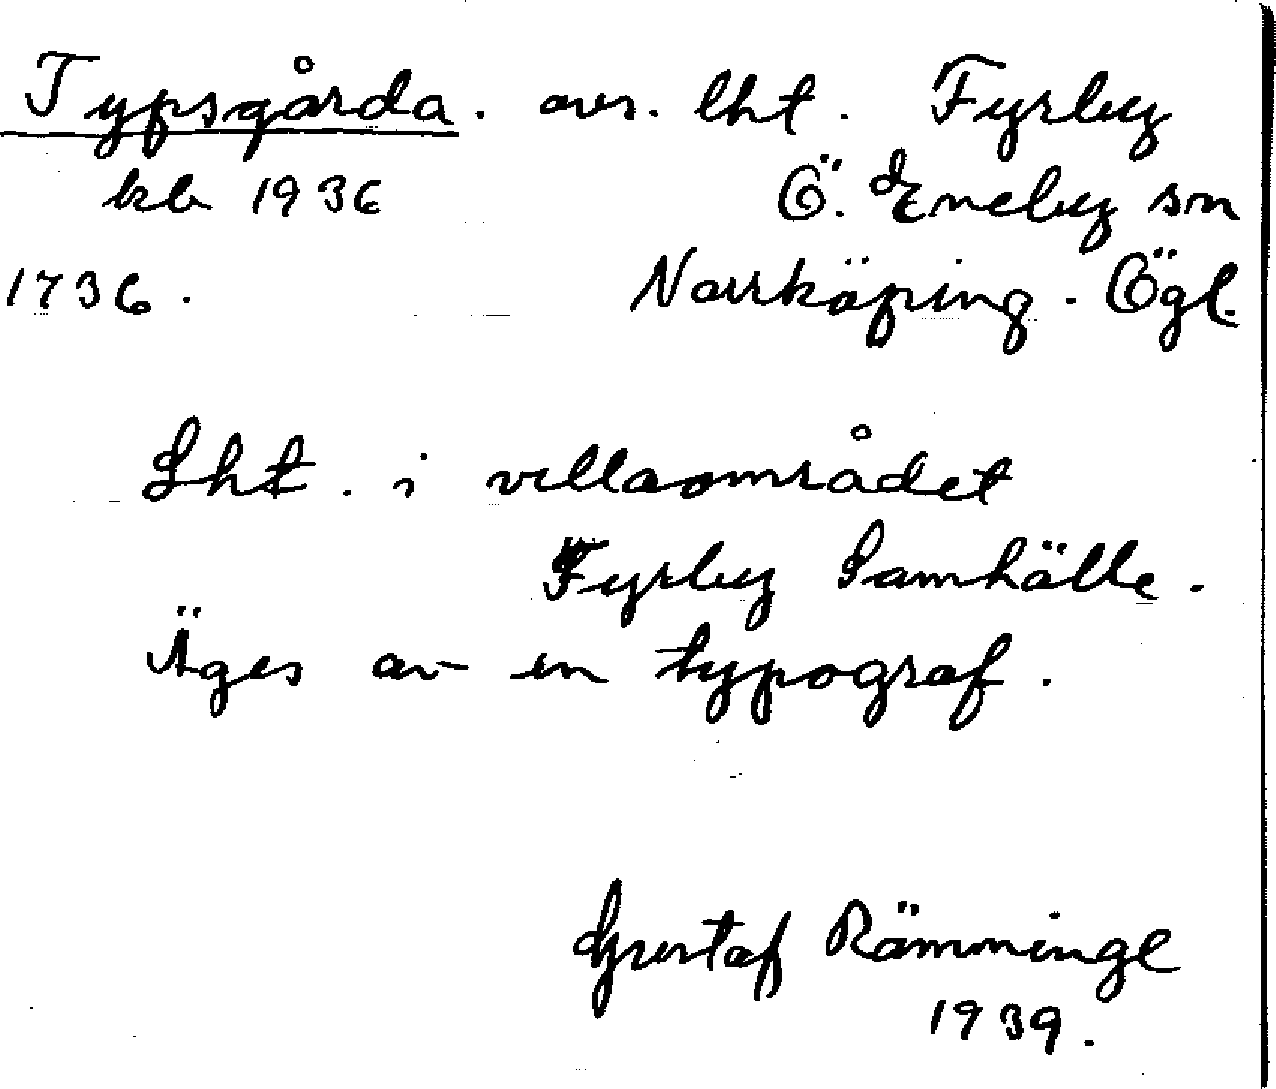 Typsgårda. avs. lht. Fyrby
kb 1936 Ö. Eneby sn
1736. Norrköping. Ögl.
Lht. i villaområdet
Fyrby Samhälle.
Äges av en typograf.
Gustaf Rämminge
1939.